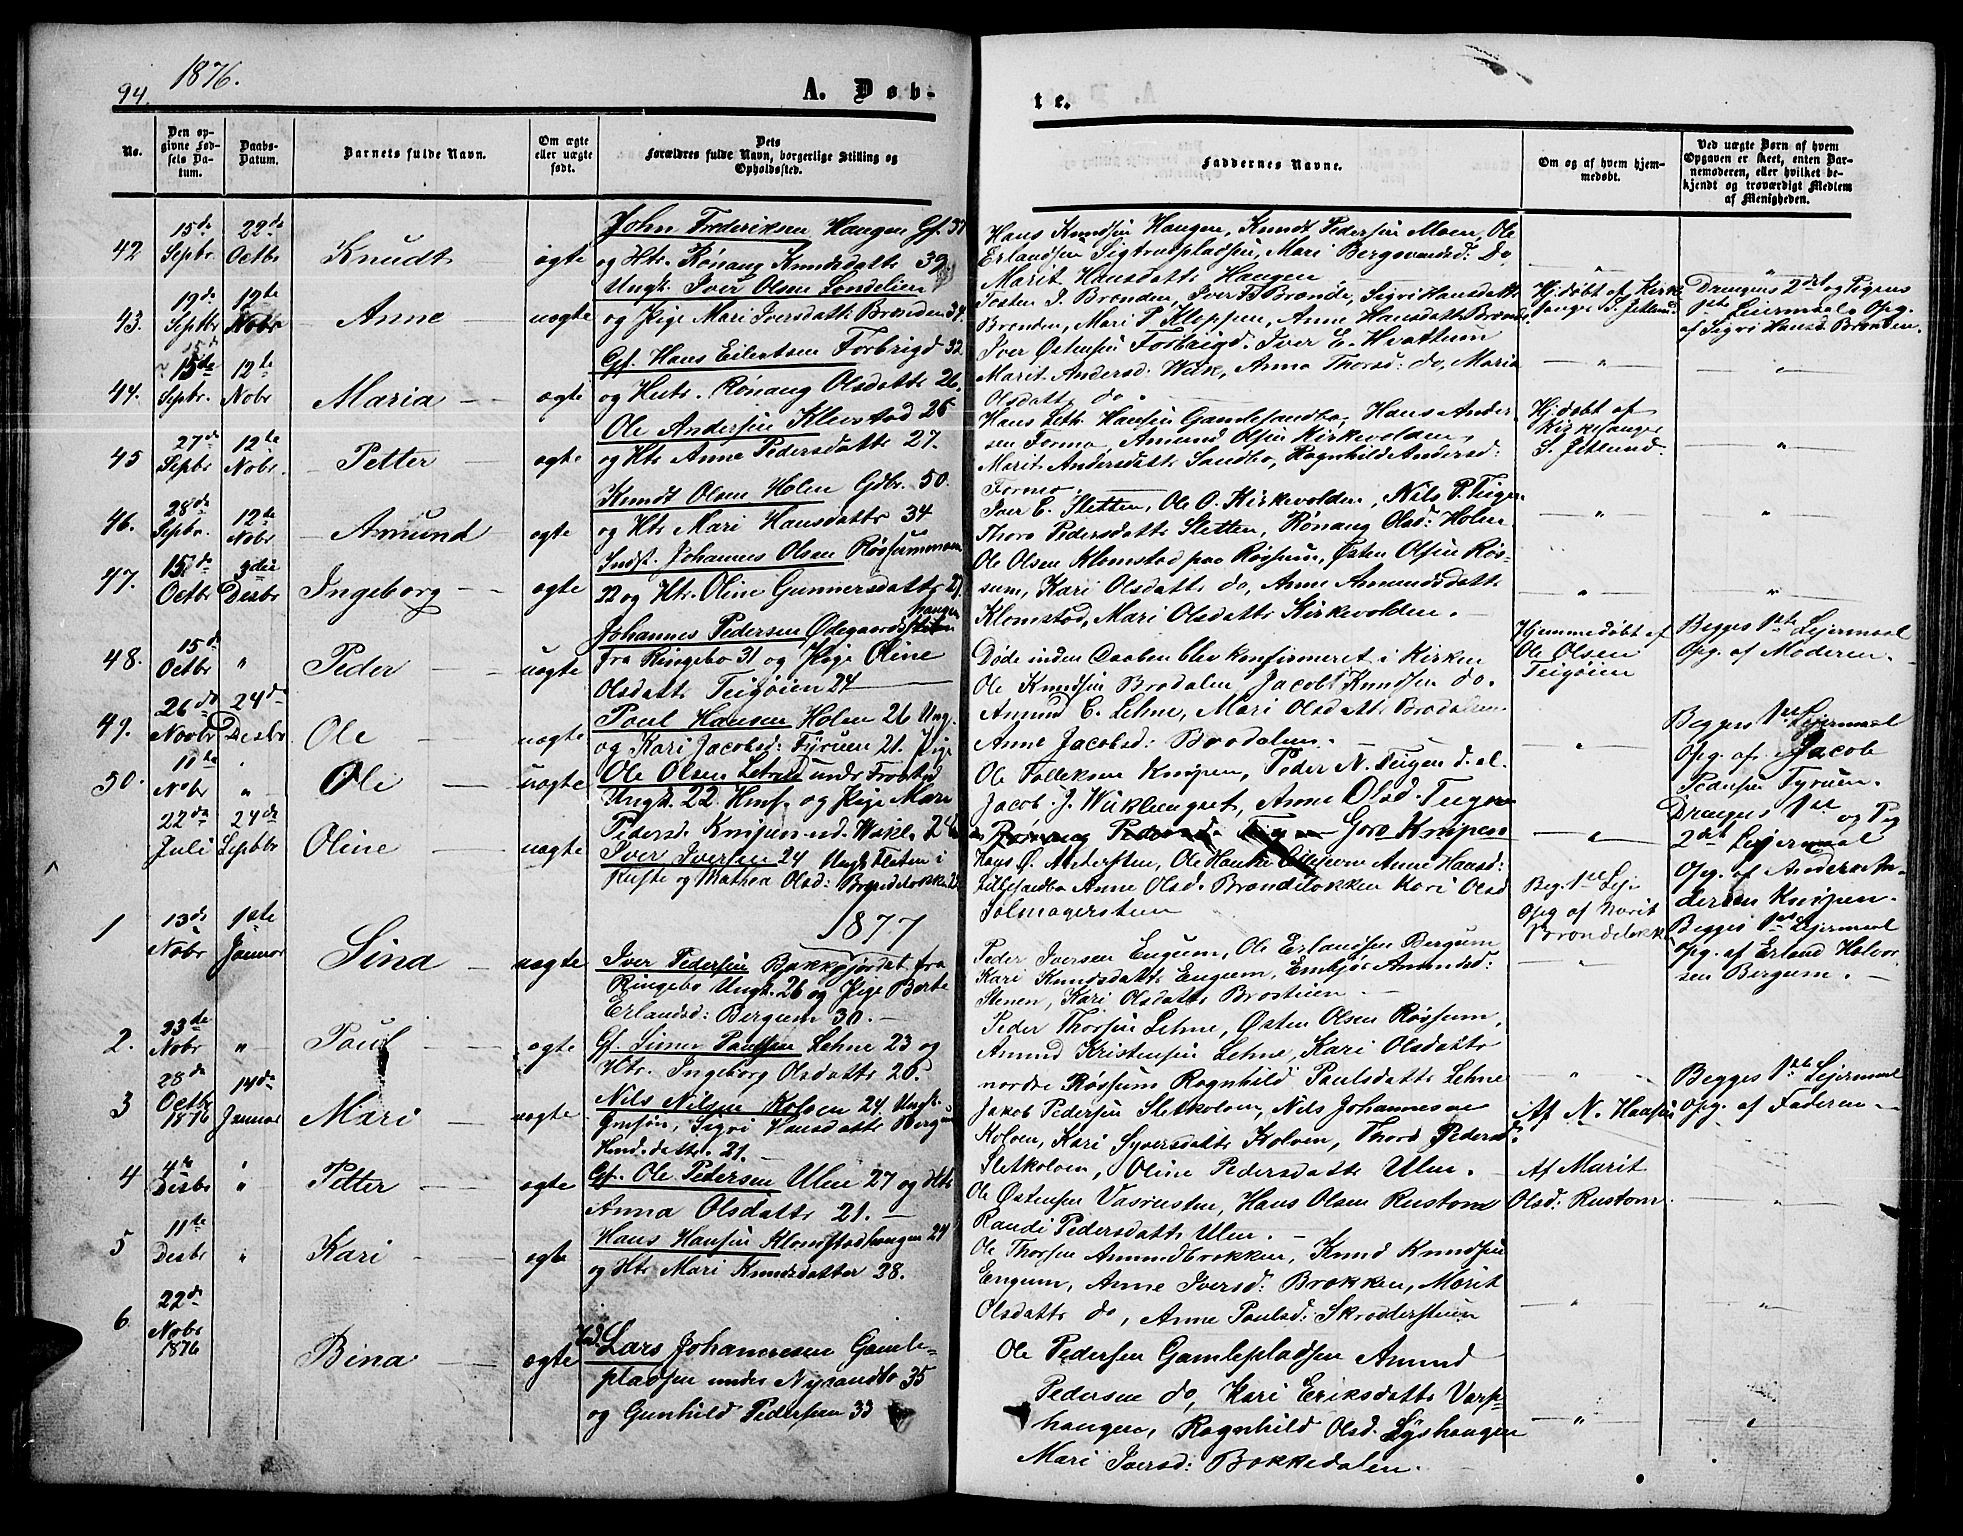 94. 1876.
A. Døb-
te.
No.
Den op-
givne Fød-
sels Da-
tum.
Daabs-
Datum.
Barnets fulde Navn.
Om ægte
eller uægte
født.
Dets
Forældres fulde Navn, borgerlige Stilling og
Opholdssted.
Faddernes Navne.
Om og af hvem hjem-
medøbt.
Ved uægte Børn af hvem
Opgaven er skeet, enten Bar-
nemoderen, eller hvilket be-
kjendt og troværdigt Medlem
af Menigheden.
42 15de Sepbr 22de Octbr Knudt ægte
John Frederiksen Haugen Gf. 37
og Htr. Rønaug Knudsdattr 39
Hans Knudsen Haugen, Knudt Pedersen Moen, Ole
Erlandsen Sigtrudpladsen, Mari Bergsvendsd: Do
Marit Hansdattr Haugen
43. 19de Septbr 19te Nobr Anne uægte
Ungk. Iver Olsen Sondelien
og Pige Mari Iversdattr Brænden 34.
Tosten I. Brænden, Iver T. Brænde, Sigri Hansdattr
Brænden, Mari P. Kleppen, Anne Hansdattr Brænde
Hj.døbt af Kirke
sanger S. Jetlund.
Drengens 2det og Pigens
1ste Leiermaal. Opg.
af Sigri Hansd. Brænden.
44. 15de Sepbr. 12te Nobr Maria ægte
Gf. Hans Eilertsen Forbrigd 32
og Hutr. Rønaug Olsdattr 26.
Iver Østensen Forbrigd. Iver E. Hrattum
Marit Andersd. Wiik, Anna Thorsd: do, Maria
Olsdattr do.
45 27de Sepbr 12te Nobr. Petter ægte
Ole Andersen Klevstad 25
og Htr Anne Pedersdattr 27.
Hans Leth. Hansen Gamlesandbo, Hans Ander-
sen Formo, Amund Olsen Kirkevolden,
Marit Andersdattr Sandbo, Ragnhild Andersd:
Formo.
Hj.døbt af
Kirkesanger
S. Jetlund.
46. 28de Sepbr. 12te Nobr Amund ægte
Knudt Olsen Holen Gdbr. 50.
og Htr Mari Hansdattr 34
Iver E. Sletten, Ole O. Kirkevolden, Nils P. Teigen
Thora Pedersdattr Sletten, Rønaug Olsd: Holen.
47. 15de Octbr 3die Desbr Ingeborg ægte
Indst. Johannes Olsen Røssummoen
22 og Htr. Oline Gunnersdattr 27.
Ole Olsen Klomstad paa Røssum, Østen Olsen Røs-
sum, Kari Olsdattr do, Anne Amundsdattr
Klomstad, Mari Olsdattr Kirkevolden.
48. 15de Octbr " Peder uægte
Johannes Pedersen Ødegaards
haugen
fra Ringebo 31 og Pige Oline
Olsdattr Teigøien 24
Døde inden Daaben blev konfirmeret i Kirken
Hjemmedøbt af
Ole Olsen
Teigøien
Begges 1ste Lejermaal
Opg. af Moderen.
49. 26de Novbr 24de Desbr Ole uægte
Poul Hansen Holen 26 Ung.
og Kari Jacobsd: Tyruen 21. Pige
Ole Knudsen Brodalen Jacob Knudsen do.
Amund C. Lehne, Mari Olsdattr Brodalen.
Anne Jacobsd: Brodalen.
Begges 1ste Lejermaal
Opg. af Jacob
Pedersen Tyruen.
50. 11te Nobr " Ole uægte
Ole Olsen undr Frostad
Ungk. 22. Hmf. og Pige Mari
Pedersd. Knipen
Ole Folleksen Knipen, Peder N. Teigen d. al.
Jacob J. Wiklienget, Anne Olsd. Teigen
Goro Knipen
Drengens 1ste og Pig
2det Lejermaal
Opg. af Anders An-
dersen Knipen.
22de Juli 24de Septbr Oline uægte
Iver Iversen 24 Ungk. Flaten i
Kufte og Mathea Olsd: Brændeløkke 23
Hans Ø. Andersten, Ole Hanke Lillejevne Anne Haasd:
Lillesandbo Anne Olsd. Brændeløkken Kari Olsd
Solmagersteen
Beg. 1ste Lej.
Opg af Marit
Brændeløkk
1877
1 13de Nobr 1ste Januar Sina uægte
Iver Pedersen Bakkejordet fra
Ringebo Ungk. 26 og Pige Berte
Erlandsd: Bergum 30.
Peder Iversen Engum, Ole Erlandsen Bergum
Kari Knudsdattr Engum, Embjør Amundsd:
Stenen, Kari Olsdattr Brosteien
Begges 1ste Lejermaal
Opg. af Erland Halvor-
sen Bergum.
2. 23de Nobr " Poul ægte
Gf. Simen Poulsen Lehne 23 og
Htr. Ingeborg Olsdattr 26.
Peder Thorsen Lehne, Østen Olsen Røssum,
Amund Kristensen Lehne, Kari Olsdattr
nordre Røssum Ragnhild Paulsdattr Lehne
3 28de Octbr 1876 14de Januar Mari uægte
Nils Nilsen Kolven 24. Ungk.
Gmsøn, Sigri Hansdattr Bergum
Hmd. dattr. 21.
Jakob Pedersen Sletkolven, Nils Johannesen
Kolven, Kari Syversdattr Kolven, Thord Pedersd:
Sletkolven, Oline Pedersdattr Ulen.
Af N. Hansen
Begges 1ste Lejermaal
Opg. af Faderen
4 4de Desbr " Petter ægte
Gf. Ole Pedersen Ulen 27 og Htr
Anna Olsdattr 21.
Ole Østensen Vasrusten, Hans Olsen Rustom
Randi Pedersdattr Ulen.
Af Marit
Olsd: Rustom
5 11te Desbr " Kari ægte
Hans Hansen Klomstadhaugen 24
og Htr Mari Knudsdatter 28.
Ole Thorsen Amundbrokken, Knud Knudsen
Engum, Anne Iversd: Brokken, Marit
Olsdattr do, Anne Poulsd: Skrødderstuen
6 22de Nobr 1876 Bina ægte
Lars Johannesen Gamle-
pladsen under Nysandbo 35
og Gunhild Pedersen 33
Ole Pedersen Gamlepladsen Amund
Pedersen do, Kari Eriksdattr Varp-
haugen, Ragnhild Olsd. Lyshaugen
Mari Iversd: Bakkedalen.